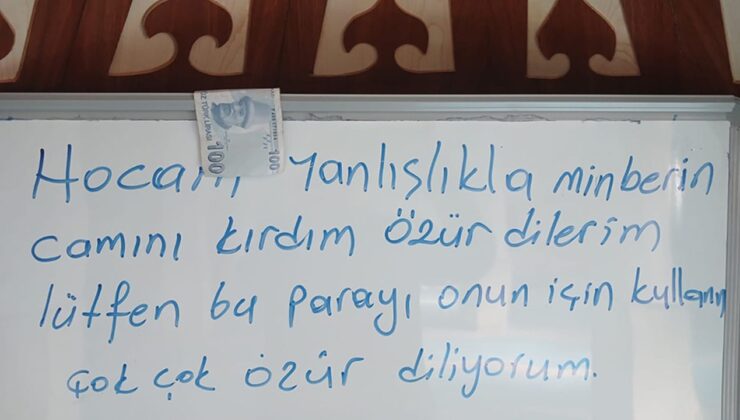 100
100
Hocam, Yanlışlıkla minberin
camını kırdım özür dilerim
lütfen bu parayı onun için kullanın
çok çok özür diliyorum.